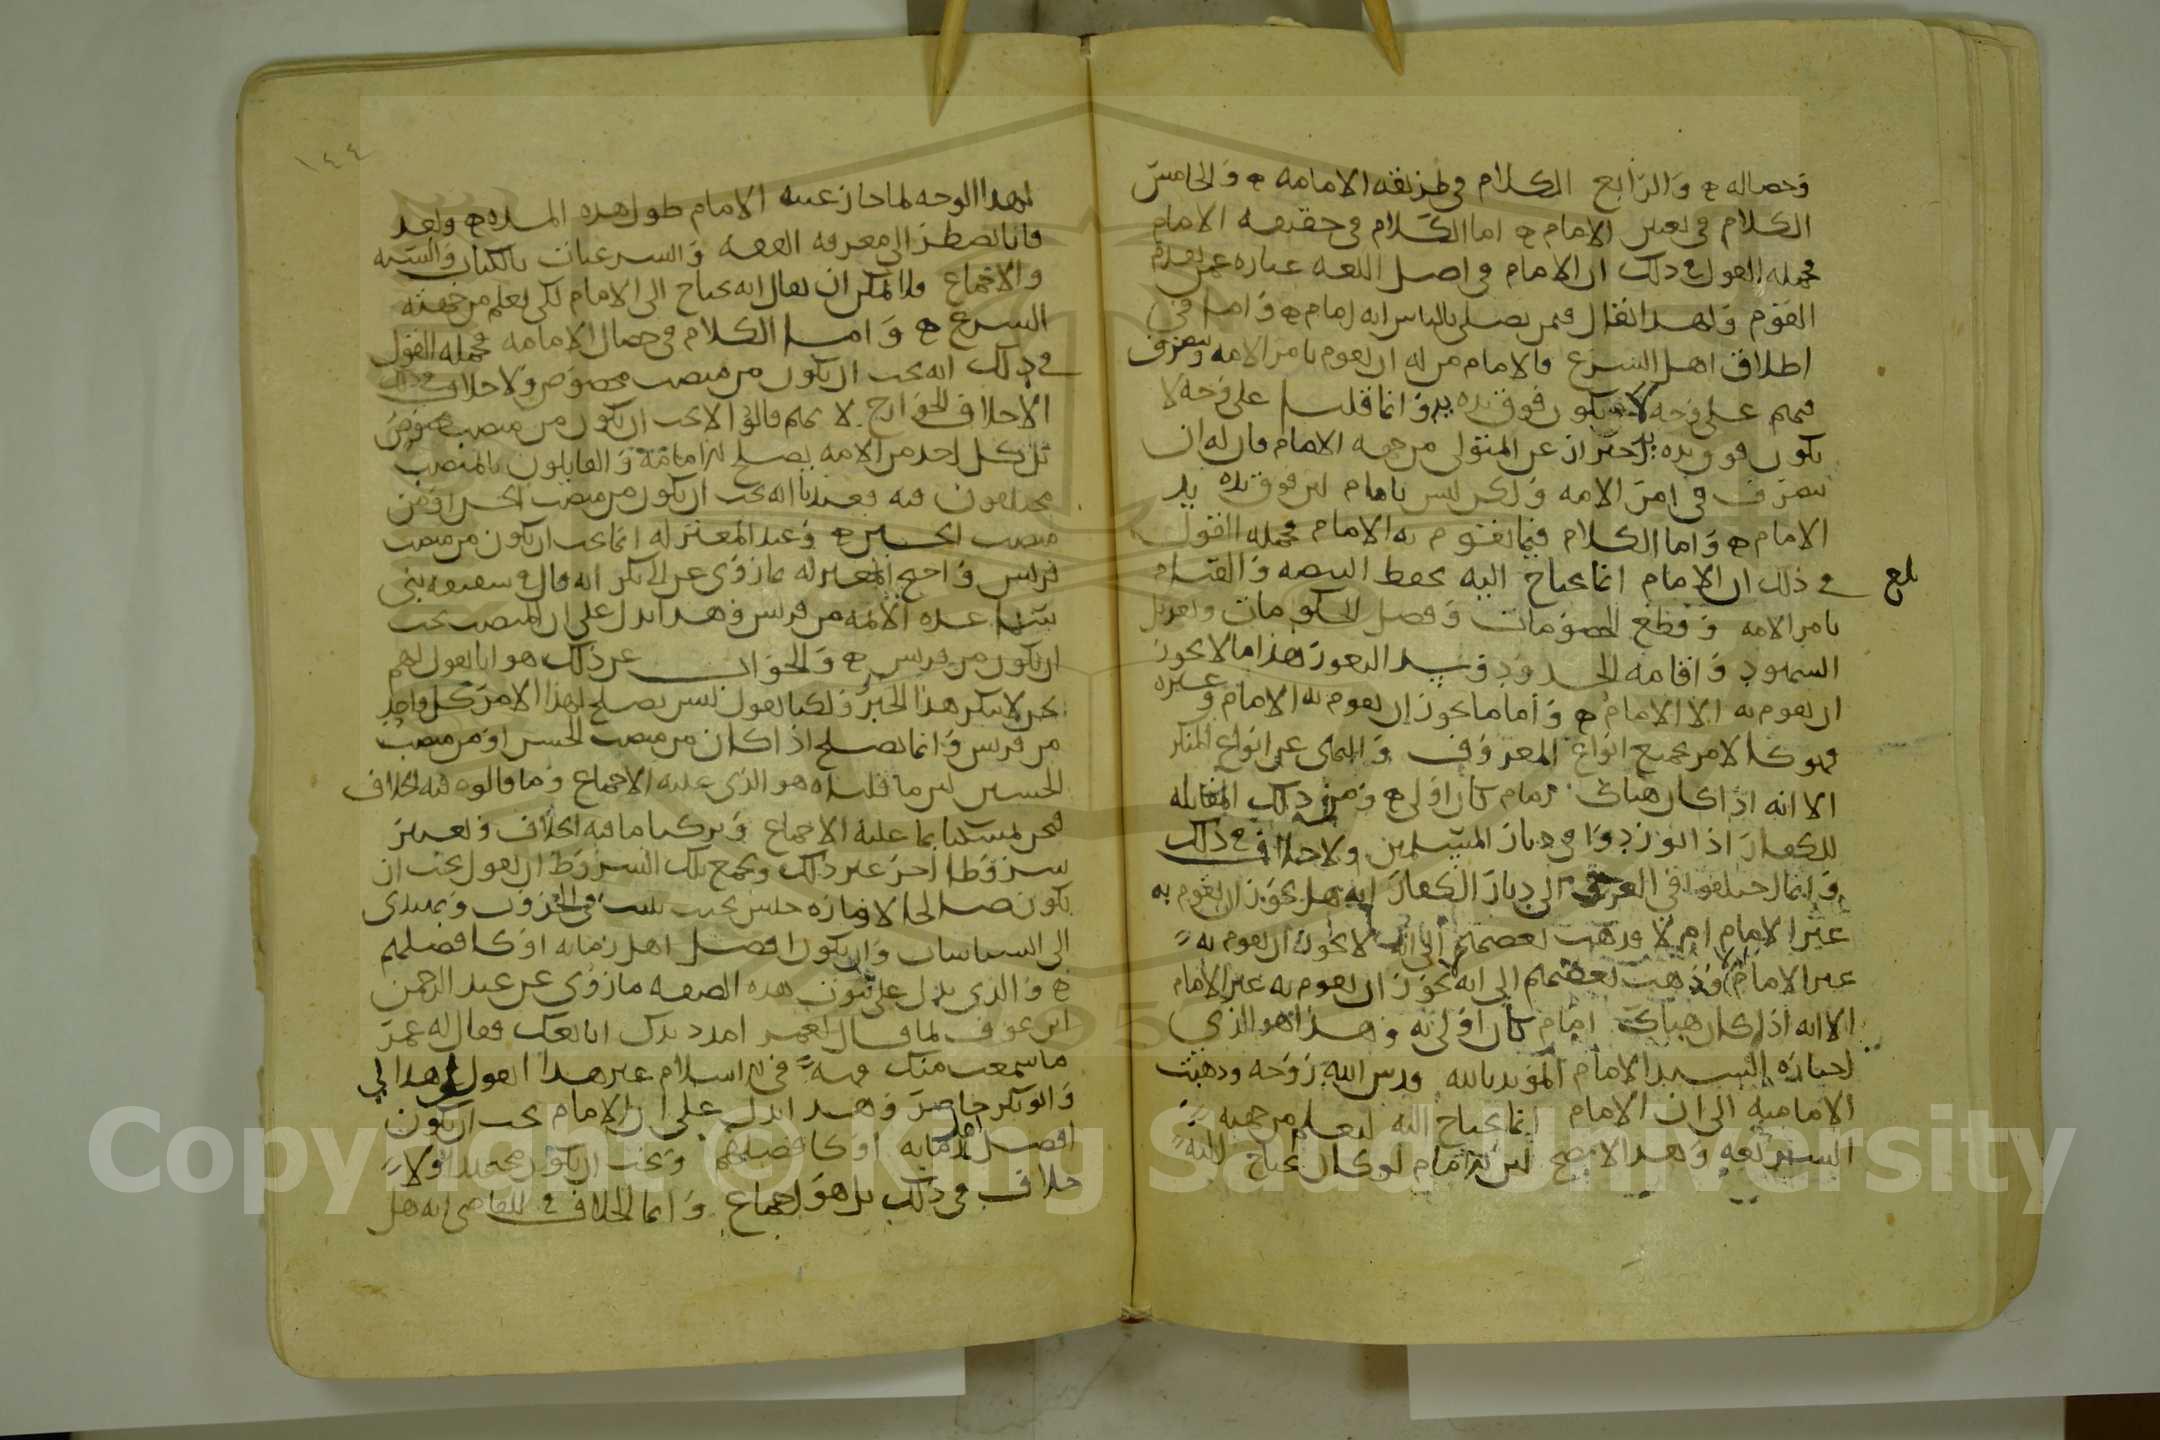 وخصاله ۞ والرابع الكلام في طريقة الامامة ۞ والخامس
الكلام في تعيين الامام ۞ اما الكلام في حقيقة الامام
فجملة القول في ذلك ان الامام في اصل اللغة عبارة عمن تقدم
القوم ولهذا يقال فيمن يصلي بالناس انه امام ۞ واما في
اطلاق اهل الشرع فالامام من له ان يقوم بامر الامة ويتصرف
فيهم على وجه لا يكون فوق يده يد وانما قلنا على وجه لا
يكون فوق يده يد احتراز عن المتولي من جهة الامام فان له ان
يتصرف في امر الامة ولكن ليس بامام لان فوق يده يد
الامام ۞ واما الكلام فيما يقوم به الامام فجملة القول
في ذلك ان الامام انما يحتاج اليه بحفظ البيضة والقيام
بلغ
بامر الامة وقطع الخصومات وفصل الحكومات وتعديل
الشهود واقامة الحدود وسد الثغور هذا مما لا يجوز
ان يقوم به الا الامام ۞ واما ما يجوز ان يقوم به الامام وغيره
فهو كالامر بجميع انواع المعروف والنهي عن انواع المنكر
الا انه اذا كان هناك امام كان اولى ۞ ومن ذلك المقاتلة
للكفار اذا وردوا في ديار المسلمين ولا خلاف في ذلك
وانما اختلفوا في الخروج الى ديار الكفار انه هل يجوز ان يقوم به
غير الامام ام لا فذهب بعضهم الى انه لا يجوز ان يقوم به
غير الامام وذهب بعضهم الى انه يجوز ان يقوم به غير الامام
الا انه اذا كان هناك امام كان اولى به وهذا هو الذي
اختاره السيد الامام المؤيد بالله قدس الله روحه وذهبت
الامامية الى ان الامام انما يحتاج اليه ليعلم من جهته
الشريعة وهذا لا يصح لان الامام لو كان يحتاج اليه
١٤٤
لهذا الوجه لما جاز غيبة الامام طول هذه المدة ۞ وبعد
فانا نضطر الى معرفة الفقه والشرعيات بالكتاب والسنة
والاجماع فلا يمكن ان يقال انه يحتاج الى الامام لكي يعلم من جهته
الشرع ۞ واما الكلام في خصال الامامة فجملة القول
في ذلك انه يجب ان يكون من منصب مخصوص ولا خلاف في ذلك
الا خلاف الخوارج لانهم قالوا لا يجب ان يكون من منصب مخصوص
بل كل احد من الامة يصلح للامامة والقايلون بالمنصب
مختلفون فيه فعندنا انه يجب ان يكون من منصب الحسن او من
منصب الحسين ۞ وعند المعتزلة انما يجب ان يكون من منصب
قريش واحتج المعتزلة بما روي عن ابي بكر انه قال في سقيفة بني
ساعدة الائمة من قريش وهذا يدل على ان المنصب يجب
ان يكون من قريش ۞ والجواب عن ذلك هو انا نقول لهم
نحن لا ننكر هذا الخبر ولكنا نقول ليس يصلح لهذا الامر كل واحد
من قريش وانما يصلح اذا كان من منصب الحسن او من منصب
الحسين لان ما قلناه هو الذي عليه الاجماع وما قالوه فيه الخلاف
فنحن تمسكنا بما عليه الاجماع وتركنا ما فيه الخلاف ونعتبر
شروطا اخر غير ذلك ويجمع تلك الشروط ان نقول يجب ان
يكون صالحا لامارة جيش بحيث يثبت في الحروب ويهتدي
الى السياسات وان يكون افضل اهل زمانه او كافضلهم
۞ والذي يدل على ثبوت هذه الصفة ما روي عن عبد الرحمن
ابن عوف لما قال لعمر امدد يدك ابايعك فقال له عمر
ما سمعت منك فهة في الاسلام غير هذا القول تقول هذا لي
وابو بكر حاضر وهذا يدل على ان الامام يجب ان يكون
افضل اهل زمانه او كافضلهم ويجب ان يكون مجتهدا ولا
خلاف في ذلك بل هو اجماع وانما الخلاف في القاضي انه هل
Copyright © King Saud University